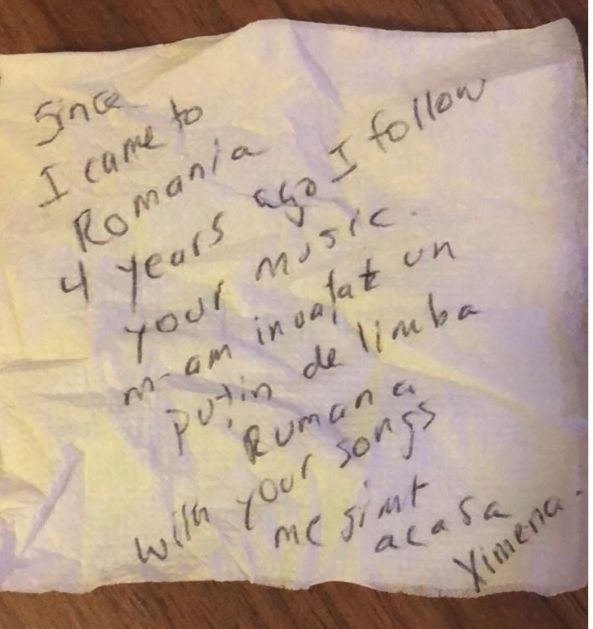 Since
I came to
Romania
4 years ago I follow
your music.
m-am invațat un
puțin de limba
Rumana
with your songs
me simt
acasa
Ximena.